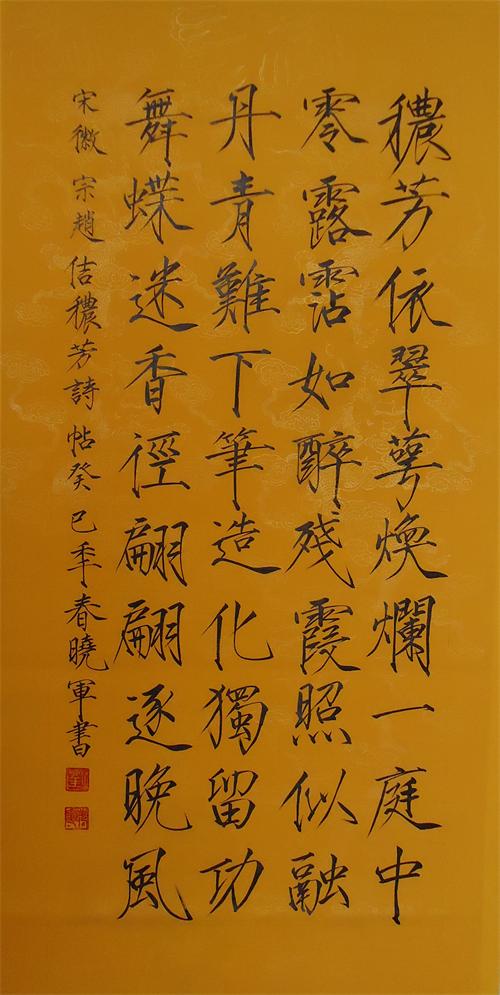 穠芳依翠萼煥爛一庭中
零露霑如醉殘霞照似融
丹青難下筆造化獨留功
舞蝶迷香徑翩翩逐晚風
宋徽宗趙佶穠芳詩帖癸巳季春曉軍書